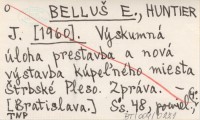 BELLUŠ E., HUNTIER
J. [1960]. Výskumná
úloha prestavba a nová
výstavba kúpeľného miesta
Štrbské Pleso. Zpráva.
[Bratislava.] Ss. 48,
TWP